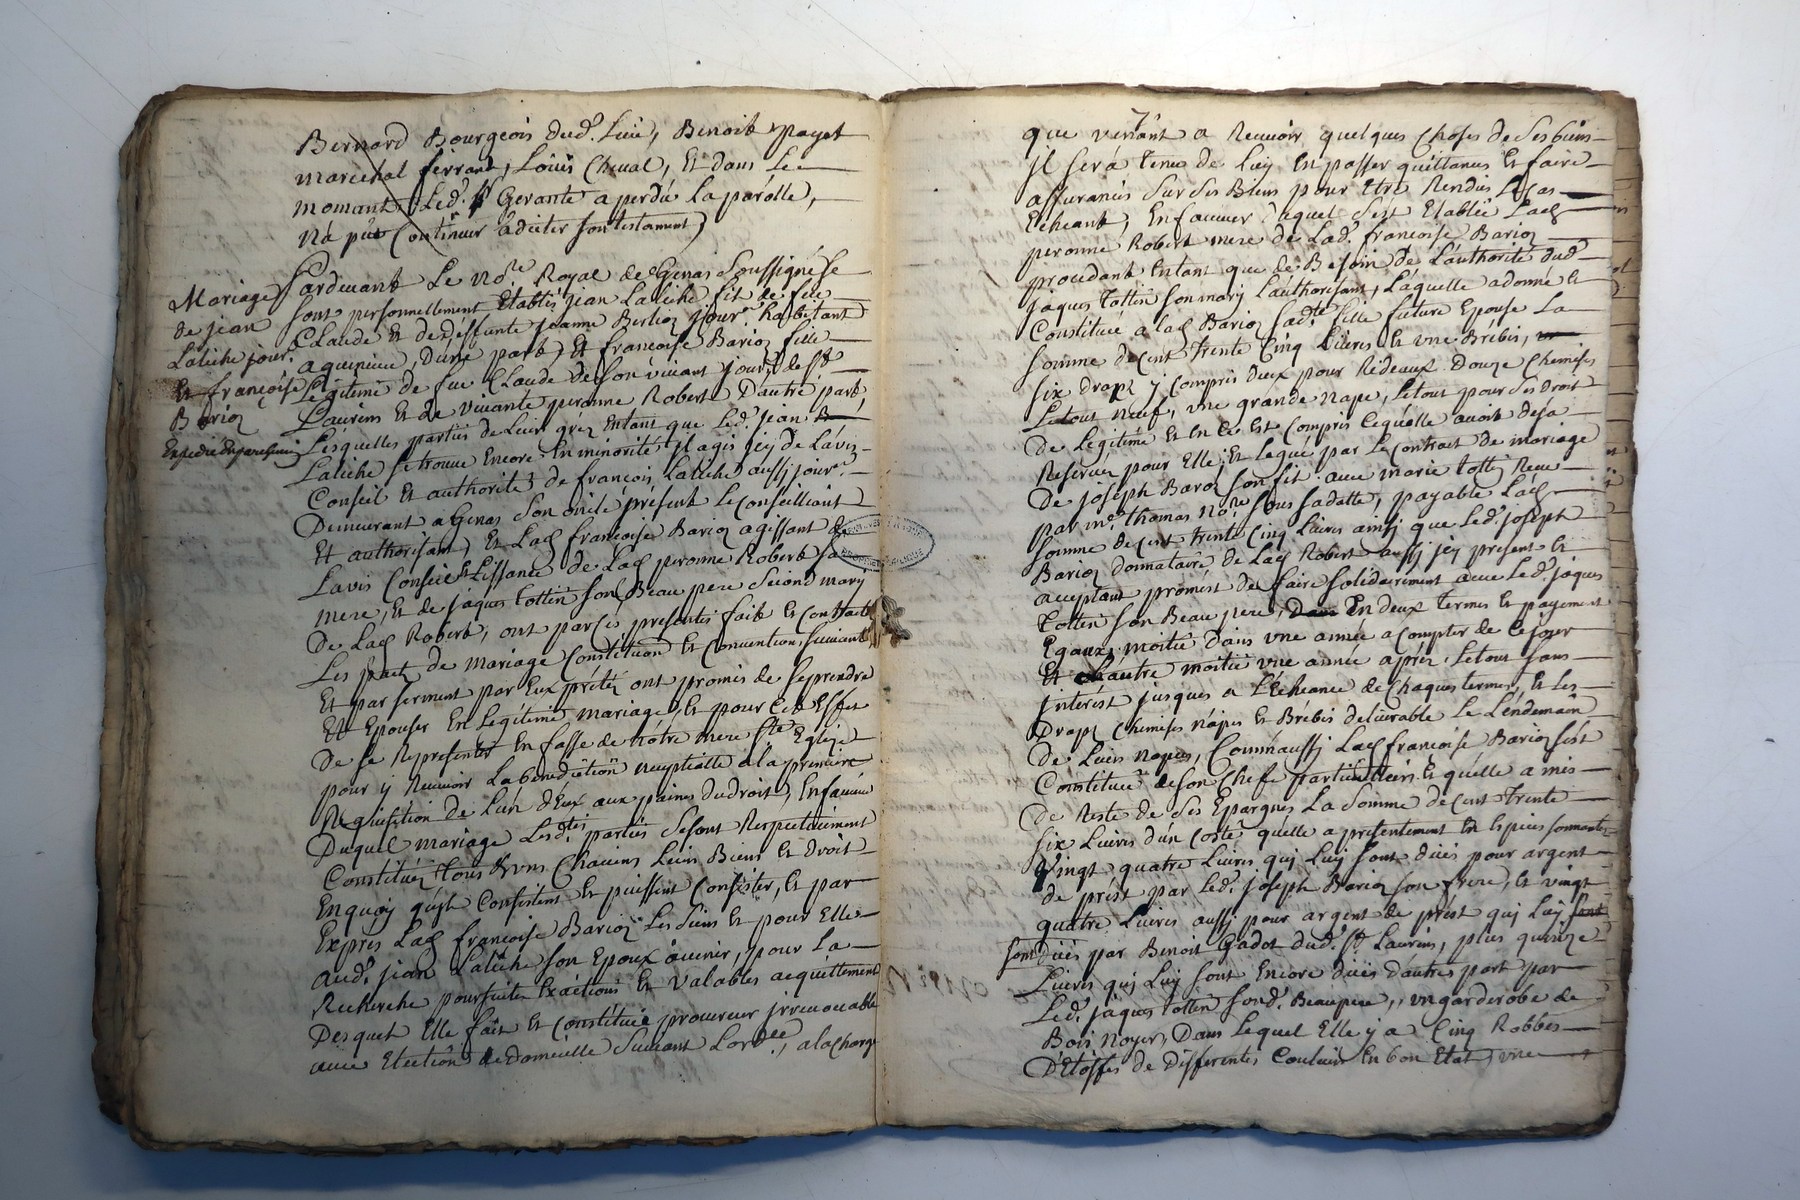 Bernard Bourgeois dud.t Lieu, Benoit payet
marechal ferrant, Loüis Cheual, Et dans Le
momant Led.t Sr Gerante a perdu La parolle,
Na pût Continuer adicter son testament)
Pardeuant Le no.re Royal de Genas Soussigné Se
sont personnellement Etablis jean Latiche fit de feu
Claude Et de deffunte jeanne Berlioz jour.r habitant
a quinsieu, Dune part, Et francoise Barioz fille
Legitime de feu Claude de son viuant jour.r de St
Laurens Et de viuante peronne Robert Dautre part,
Lesquelles parties de Leur gréz Entant que Led.t jean
Latiche se trouue Encore En minorité jl agit jcy de Lavis
Conseil Et authorité de francois Latiche aussj jour.r
Demeurant a Genas Son oncle présent Le Conseilliant
Et authorisant, Et Lad francoise Barioz agissant de
Lavis Conseil Et Lissance de Lad peronne Robert sa
mere, Et de jaques Tottin Son Beau pere Second mary
De Lad Robert, ont par Ces presentes fait Et Contracté
Les pact de mariage Constitution Et Conventions Suiuants
Et par serment par Eux prétéz ont promis de se prendre
Et Epouser En Legitime mariage, Et pour Cét Effet
De se Representer En fasse de nôtre mere Ste Eglize
pour y Receuoir La benediction nuptialle a la premiere
Requisition de Lun dEux aux paines du droit, En faueur
Duquel mariage Lesd.tes parties se sont Respectiuement
Constitüéz tous Et vns Chacuns Leurs Biens Et Droit
En quoy quils Consistent Et puissent Consister, Et par
Exprés Lad francoise Barioz Les siens Et pour Elle
Aud.t jean Latiche son Epoux auenir, pour La
Recherche poursuite Exactions Et Valables acquittement
Desquel Elle fait Et Constitüe procureur jrreuocable
auec Election de domicille Suiuant Lord.ce, a la Charge
Mariage
de jean
Latiche jour.r
Et francoise
Barioz
Expedié En parchemin
7
que venant a Receuoir quelques Choses de Ses biens
jl serà tenu de Luy En passer quittances Et faire
assurances Sur Ses Biens pour Etre Rendus Le Cas
Echeant, En faueur duquel Sest Etablie Lad
peronne Robert mere de Lad.t francoise Barioz
procedant Entant que de Besoin de Lauthorité dud
jaques Tottin Son mary Lauthorisant, Laquelle a donné Et
Constitué a lad Barioz sad.te fille future Epouse La
Somme de Cent trente Cinq Liures Et vne Brébis,
Six Drapz y Compris deux pour Rideaux Douze Chemises
Le tout neuf, vne grande nape, Le tout pour Ses Droit
De Legitime Et En Ce Est Compris Ce quelle auoit deja
Reseruéz pour Elle, Et Legué par Le Contrat de mariage
De joseph Baroz son fit auec marie Tottin Receu
par m.e Thomas no.re Sous Sadatte, payable Lad
Somme de Cent trente Cinq Liures ainsj que Led.t joseph
Barioz donnataire de Lad Robert aussj jcy present Et
acceptant proméet de faire Solidairement auec Led.t jaques
Totten Son Beau pere, Dans En deux termes Et payement
Egaux, moitié Dans vne année a Compter de Ce jour
Et Lautre moitié vne année aprés, Le tout Sans
jnterest jusques a L'Echeance de Chaques termes, Et Les
Drapz Chemises nápes Et Brébis deliurable Le Lendemain
De Leurs nopces, Comm'aussj Lad francoise Barioz Sest
Constituée de Son Chefe particullier Et quélle a mis
De Reste de Ses Epargnes La Somme de Cent trente
Six Liures d'un Costé quelle a presentement En Especes sonnantes
Vingt quatre Liures quj Luy Sont düés pour argent
de prést par Led.t joseph Barioz Son frere, Et vingt
quatre Liures aussj pour argent de prést quj Luy
Sont düés par Benoit Gadot dud.t St Laurens, plus quinze
Liures quj Luy Sont Encore düés dautres part par
Led.t jaques Totten Sond.t Beaupere, vn garderobe de
Bois noyer, Dans Lequel Elle y a Cinq Robbes
D'Etoffes de Differentes Couleurs En bon Etat, vne